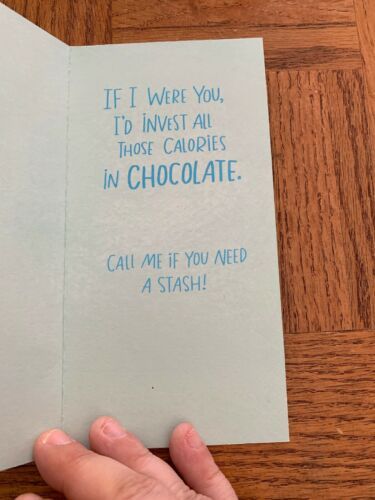 IF I WERE YOU,
I'D INVEST ALL
THOSE CALORIES
IN CHOCOLATE.
CALL ME IF YOU NEED
A STASH!